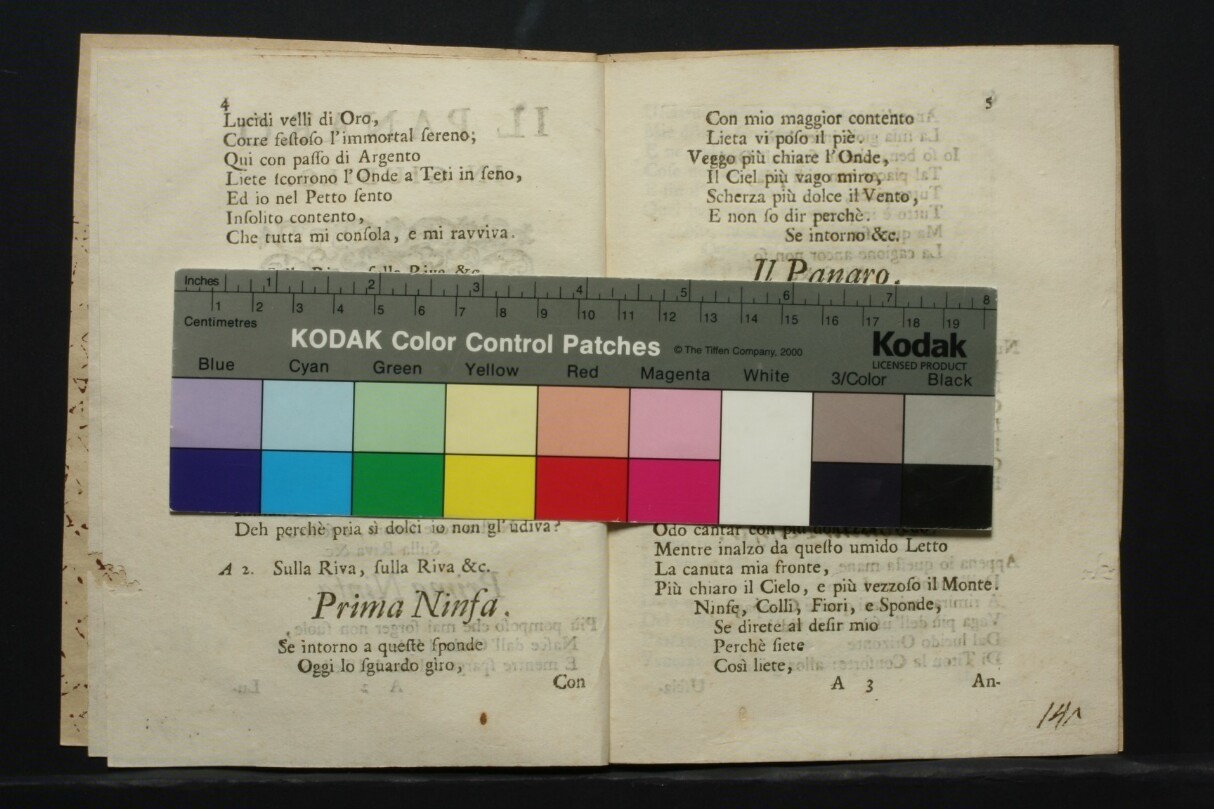 4
Lucidi velli di Oro,
Corre feſtoſo l'immortal ſereno;
Qui con paſſo di Argento
Liete ſcorrono l'Onde a Teti in ſeno,
Ed io nel Petto ſento
Inſolito contento,
Che tutta mi conſola, e mi ravviva.
Riva, ſulla Riva &c.
Deh perchè pria sì dolci io non gl'udiva?
A 2. Sulla Riva, ſulla Riva &c.
Prima Ninfa.
Se intorno a queſte ſponde
Oggi lo ſguardo giro,
Con
5
Con mio maggior contento
Lieta vi poſo il piè.
Veggo più chiare l'Onde,
Il Ciel più vago miro,
Scherza più dolce il Vento,
E non ſo dir perchè.
Se intorno &c.
Il Panaro.
Odo cantar con più
Mentre inalzo da queſto umido Letto
La canuta mia fronte,
Più chiaro il Cielo, e più vezzoſo il Monte.
Ninfe, Colli, Fiori, e Sponde,
Se direte al deſir mio
Perchè ſiete
Così liete,
A 3 An-
Inches 1 2 3 4 5 6 7 8
Centimetres 1 2 3 4 5 6 7 8 9 10 11 12 13 14 15 16 17 18 19
KODAK Color Control Patches © The Tiffen Company, 2000 Kodak
LICENSED PRODUCT
Blue Cyan Green Yellow Red Magenta White 3/Color Black